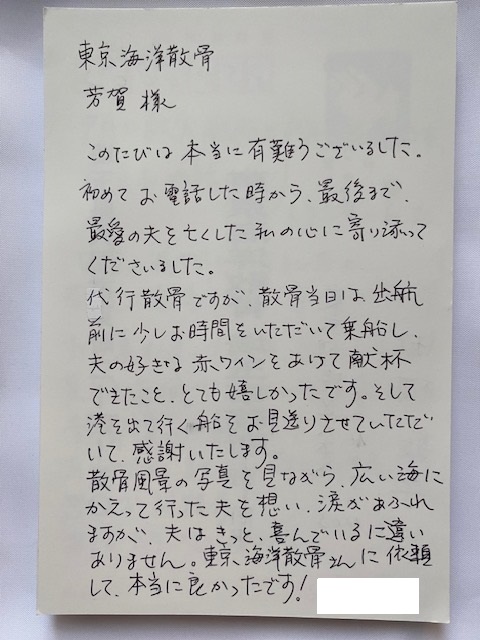 東京海洋散骨
芳賀 様
このたびは 本当に 有難うございました。
初めて お電話した時から、最後まで、
最愛の夫を亡くした私の心に寄り添って
くださいました。
代行散骨ですが、散骨当日は 出航
前に少しお時間をいただいて乗船し、
夫の好きな 赤ワインをあけて 献杯
できたこと、とても嬉しかったです。そして
港を出て行く船をお見送りさせていただ
いて、感謝いたします。
散骨風景の写真を見ながら、広い海に
かえって行った夫を想い、涙があふれ
ますが、夫はきっと、喜んでいるに違い
ありません。東京海洋散骨さんに依頼
して、本当に良かったです!